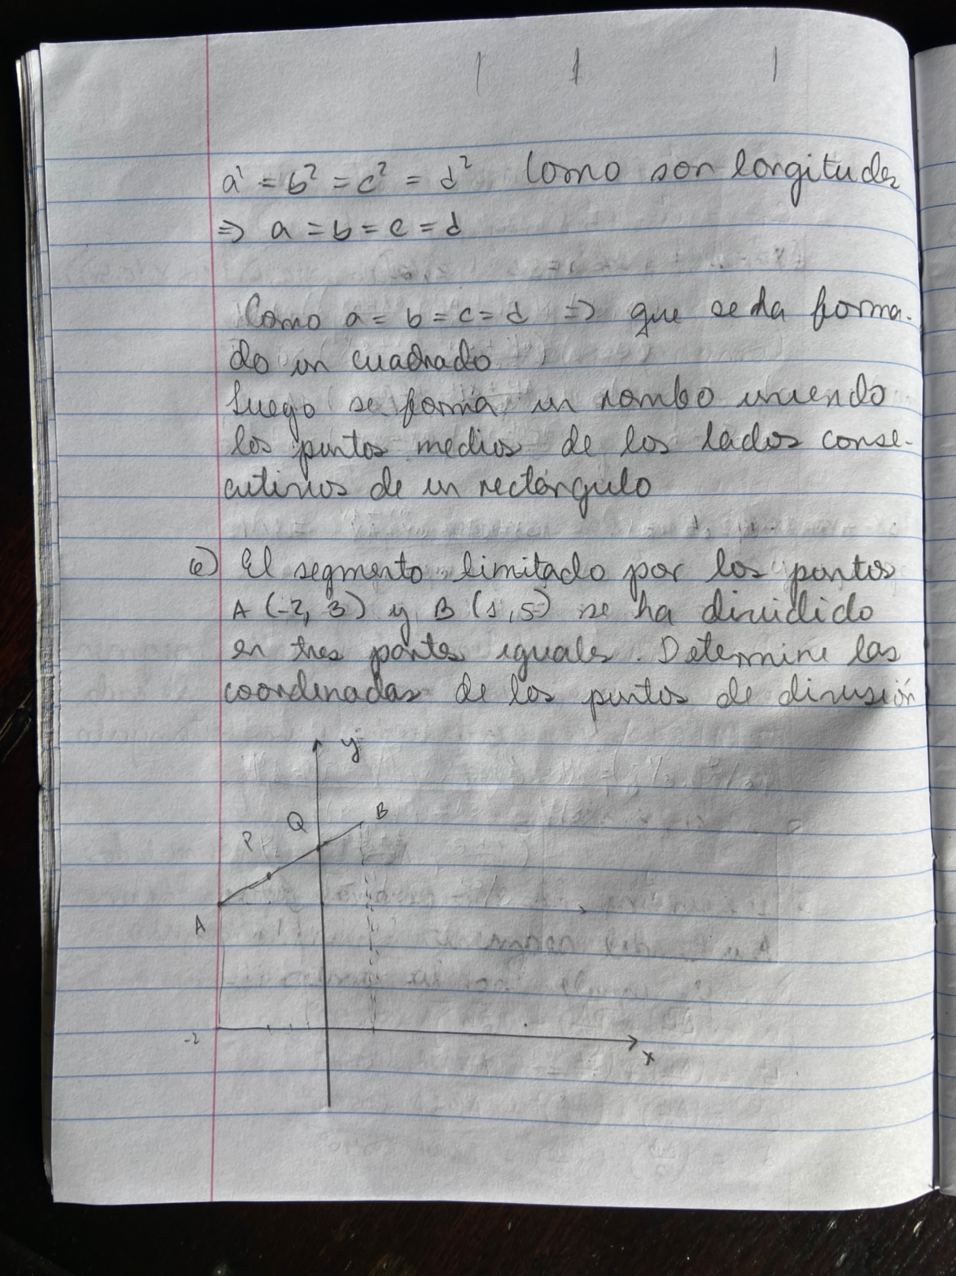 a² = b² = c² = d² Como son longitudes
⇒ a = b = c = d
Como a = b = c = d ⇒ que se ha forma-
do un cuadrado
Luego se forma un rombo uniendo
los puntos medios de los lados conse-
cutivos de un rectángulo
e) El segmento limitado por los puntos
A (-2, 3) y B (1, 5) se ha dividido
en tres partes iguales. Determine las
coordenadas de los puntos de division
y
Q B
P
A
-2
x